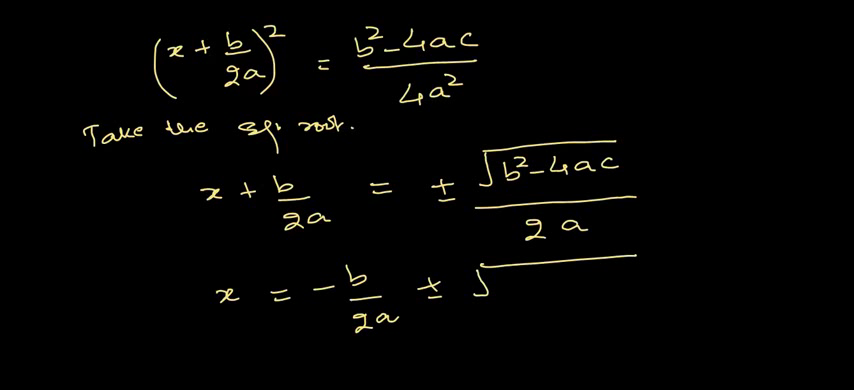 (x + b/2a)² = b²-4ac/4a²
Take the sq. root.
x + b/2a = ± √b²-4ac/2a
x = -b/2a ± √